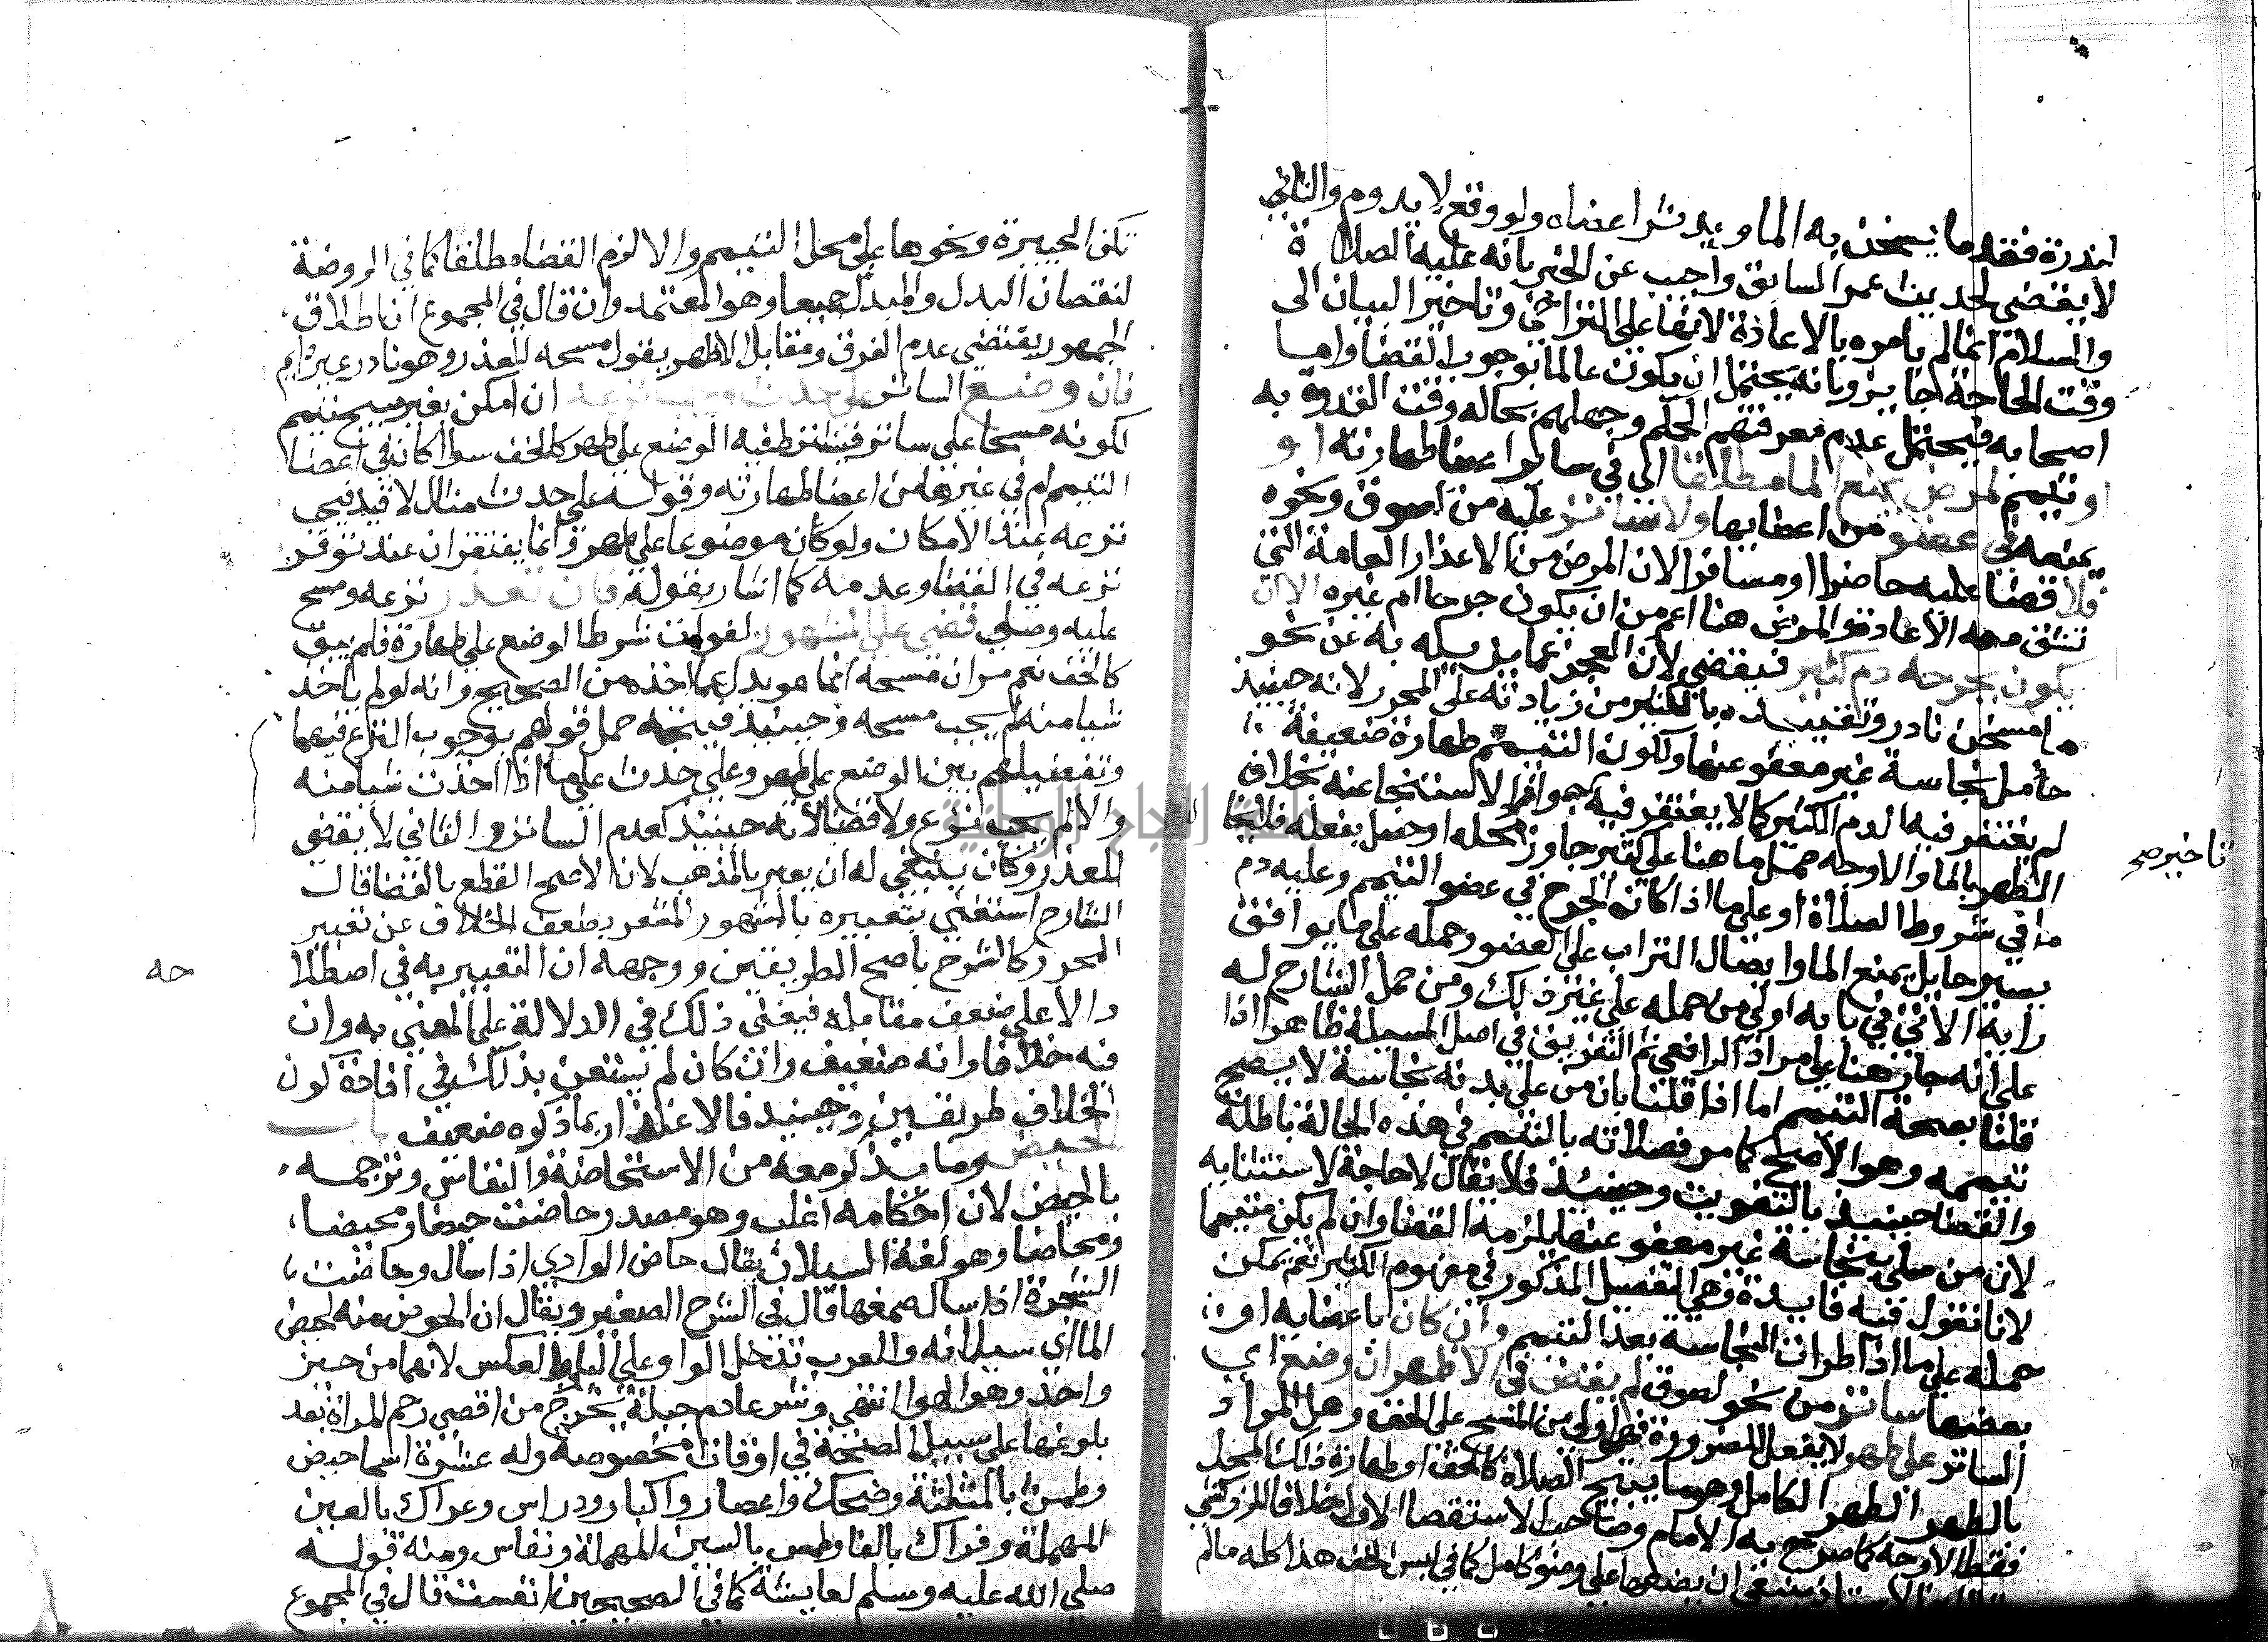 لندرة فقد ما يسخن به الما ويدثر اعضاه ولو وقع لا يدوم والثاني
لا يقتضي لحديث عمر السابق واجيب عن الخبر بانه عليه الصلاة
والسلام انما لم يامره بالاعادة لانها على التراخي وتاخير البيان الى
وقت الحاجة جايز وبانه يحتمل ان يكون عالما بوجوب القضا واما
اصحابه فيحتمل عدم معرفتهم الحكم وجهلهم بحاله وقت القدوة به
او تيمم لمرض يمنع الما مطلقا اي في ساير اعضا طهارته او
يمنعه في عضو من اعضايها ولا ساتر عليه من لصوق ونحوه
فلا قضا عليه حاضرا او مسافرا لان المرض من الاعذار العامة التي
تشق معه الاعادة والمرض هنا اعم من ان يكون جرحا ام غيره الا ان
يكون بجرحه دم كثير فيقضي لان العجز عما يزيله به عن نحو
ما مسخن نادر وتقييده بالكثير من زيادته على المحرر لانه حينيذ
حامل نجاسة غير معفو عنها ولكون التيمم طهارة ضعيفة
لم يغتفر فيه الدم الكثير كما لا يغتفر فيه جواز الاستنجا عنه بخلاف
التطهر بالما والاوجه حمل ما هنا على كثير جاوز محله او حصل بفعله
تاخير صح
ما في شروط الصلاة او على ما اذا كان الجرح في عضو التيمم وعليه دم
يسير حايل يمنع الما وايصال التراب على العضو وحمله على ما يوافق
رايه الاتي في بابه اولى من حمله على غير ذلك ومن حمل الشارح له
على انه جار هنا على مراد الرافعي ثم التفريق في اصل المسيلة ظاهر اذا
قلنا بصحة التيمم اما اذا قلنا بان من على بدنه نجاسة لا يصح
تيممه وهو الاصح كما مر فصلاته بالتيمم في هذه الحالة باطلة
والقضا حينيذ بالتفويت وحينيذ فلا يقال لا حاجة لاستثنايه
لان من صلى بنجاسة غير معفو عنها يلزمه القضا وان لم يكن متيمما
لانا نقول فيه فايدة وهي التفصيل المذكور في مفهوم الكثير نعم يمكن
حمله على ما اذا طرات النجاسة بعد التيمم وان كان باعضايه او
بعضها ساتر من نحو لصوق لم يقض في الاظهر ان وضع اي
الساتر على طهر لا يفعل للضرورة فهو اولى من المسح على الخف وهل المراد
بالطهر الطهر الكامل وهو ما يبيح الصلاة كالخف او طهارة ذلك المحل
فقط الاوجه كما صرح به الامام وصاحب الاستقصا الاول خلافا للزركشي
ينبغي ان يضعها على وضو كامل كما في لبس الخف هذا كله ما لم
تكن الجبيرة ونحوها على محل التيمم والا لزم القضا مطلقا كما في الروضة
لنقصان البدل والمبدل جميعا وهو المعتمد وان قال في المجموع ان اطلاق
الجمهور يقتضي عدم الفرق ومقابل الاظهر يقول مسحه للعذر وهو نادر غير دايم
فان وضع الساتر على حدث وجب نزعه ان امكن بغير مبيح تيمم
لكونه مسحا على ساتر فيشترط فيه الوضع على طهر كالخف سوا كان في اعضا
التيمم ام في غيرها من اعضا طهارته وقوله على حدث مثال لا قيد فيجب
نزعه عند الامكان ولو كان موضوعا على طهر وانما يفترقان عند تعذر
نزعه في القضا وعدمه كما اشار بقوله فان تعذر نزعه ومسح
عليه وصلى قضى على المشهور لفوات شرط الوضع على طهارة فلم يبق
كالخف نعم مر ان مسحه انما هو بدل عما اخذه من الصحيح وانه لو لم ياخذ
شيا منه لم يجب مسحه وحينيذ فيتجه حمل قولهم بوجوب النزع فيهما
وتفصيلهم بين الوضع على طهر وعلى حدث على ما اذا اخذت شيا منه
والا لم يجب نزع ولا قضا لانه حينيذ كعدم الساتر والثاني لا يقضي
للعذر وكان ينبغي له ان يعبر بالمذهب لان الاصح القطع بالقضا قال
الشارح استغنى بتعبيره بالمشهور المشعر بضعف الخلاف عن تعبير
المحرر كالشرح باصح الطريقين ووجهه ان التعبير به في اصطلا
حه
دال على ضعف مقابله فيغني ذلك في الدلالة على المعنى به وان
فيه خلافا وانه ضعيف وان كان لم يستغن بذلك في افادة كون
الخلاف طريقين وحينيذ فالاعتذار بما ذكره ضعيف باب
الحيض وما يذكر معه من الاستحاضة والنفاس وترجمه
بالحيض لان احكامه اغلب وهو مصدر حاضت حيضا ومحيضا
ومحاضا وهو لغة السيلان يقال حاض الوادي اذا سال وحاضت
الشجرة اذا سال صمغها قال في الشرح الصغير ويقال ان الحوض منه لحيض
الما اي سيلانه والعرب تدخل الواو على اليا وبالعكس لانهما من حيز
واحد وهو الهوا انتهى وشرعا دم جبلة يخرج من اقصى رحم المراة بعد
بلوغها على سبيل الصحة في اوقات مخصوصة وله عشرة اسما حيض
وطمث بالمثلثة وضحك واعصار واكبار ودراس وعراك بالعين
المهملة وفراك بالفا وطمس بالسين المهملة ونفاس ومنه قوله
صلى الله عليه وسلم لعايشة كما في الصحيحين انفست قال في المجموع